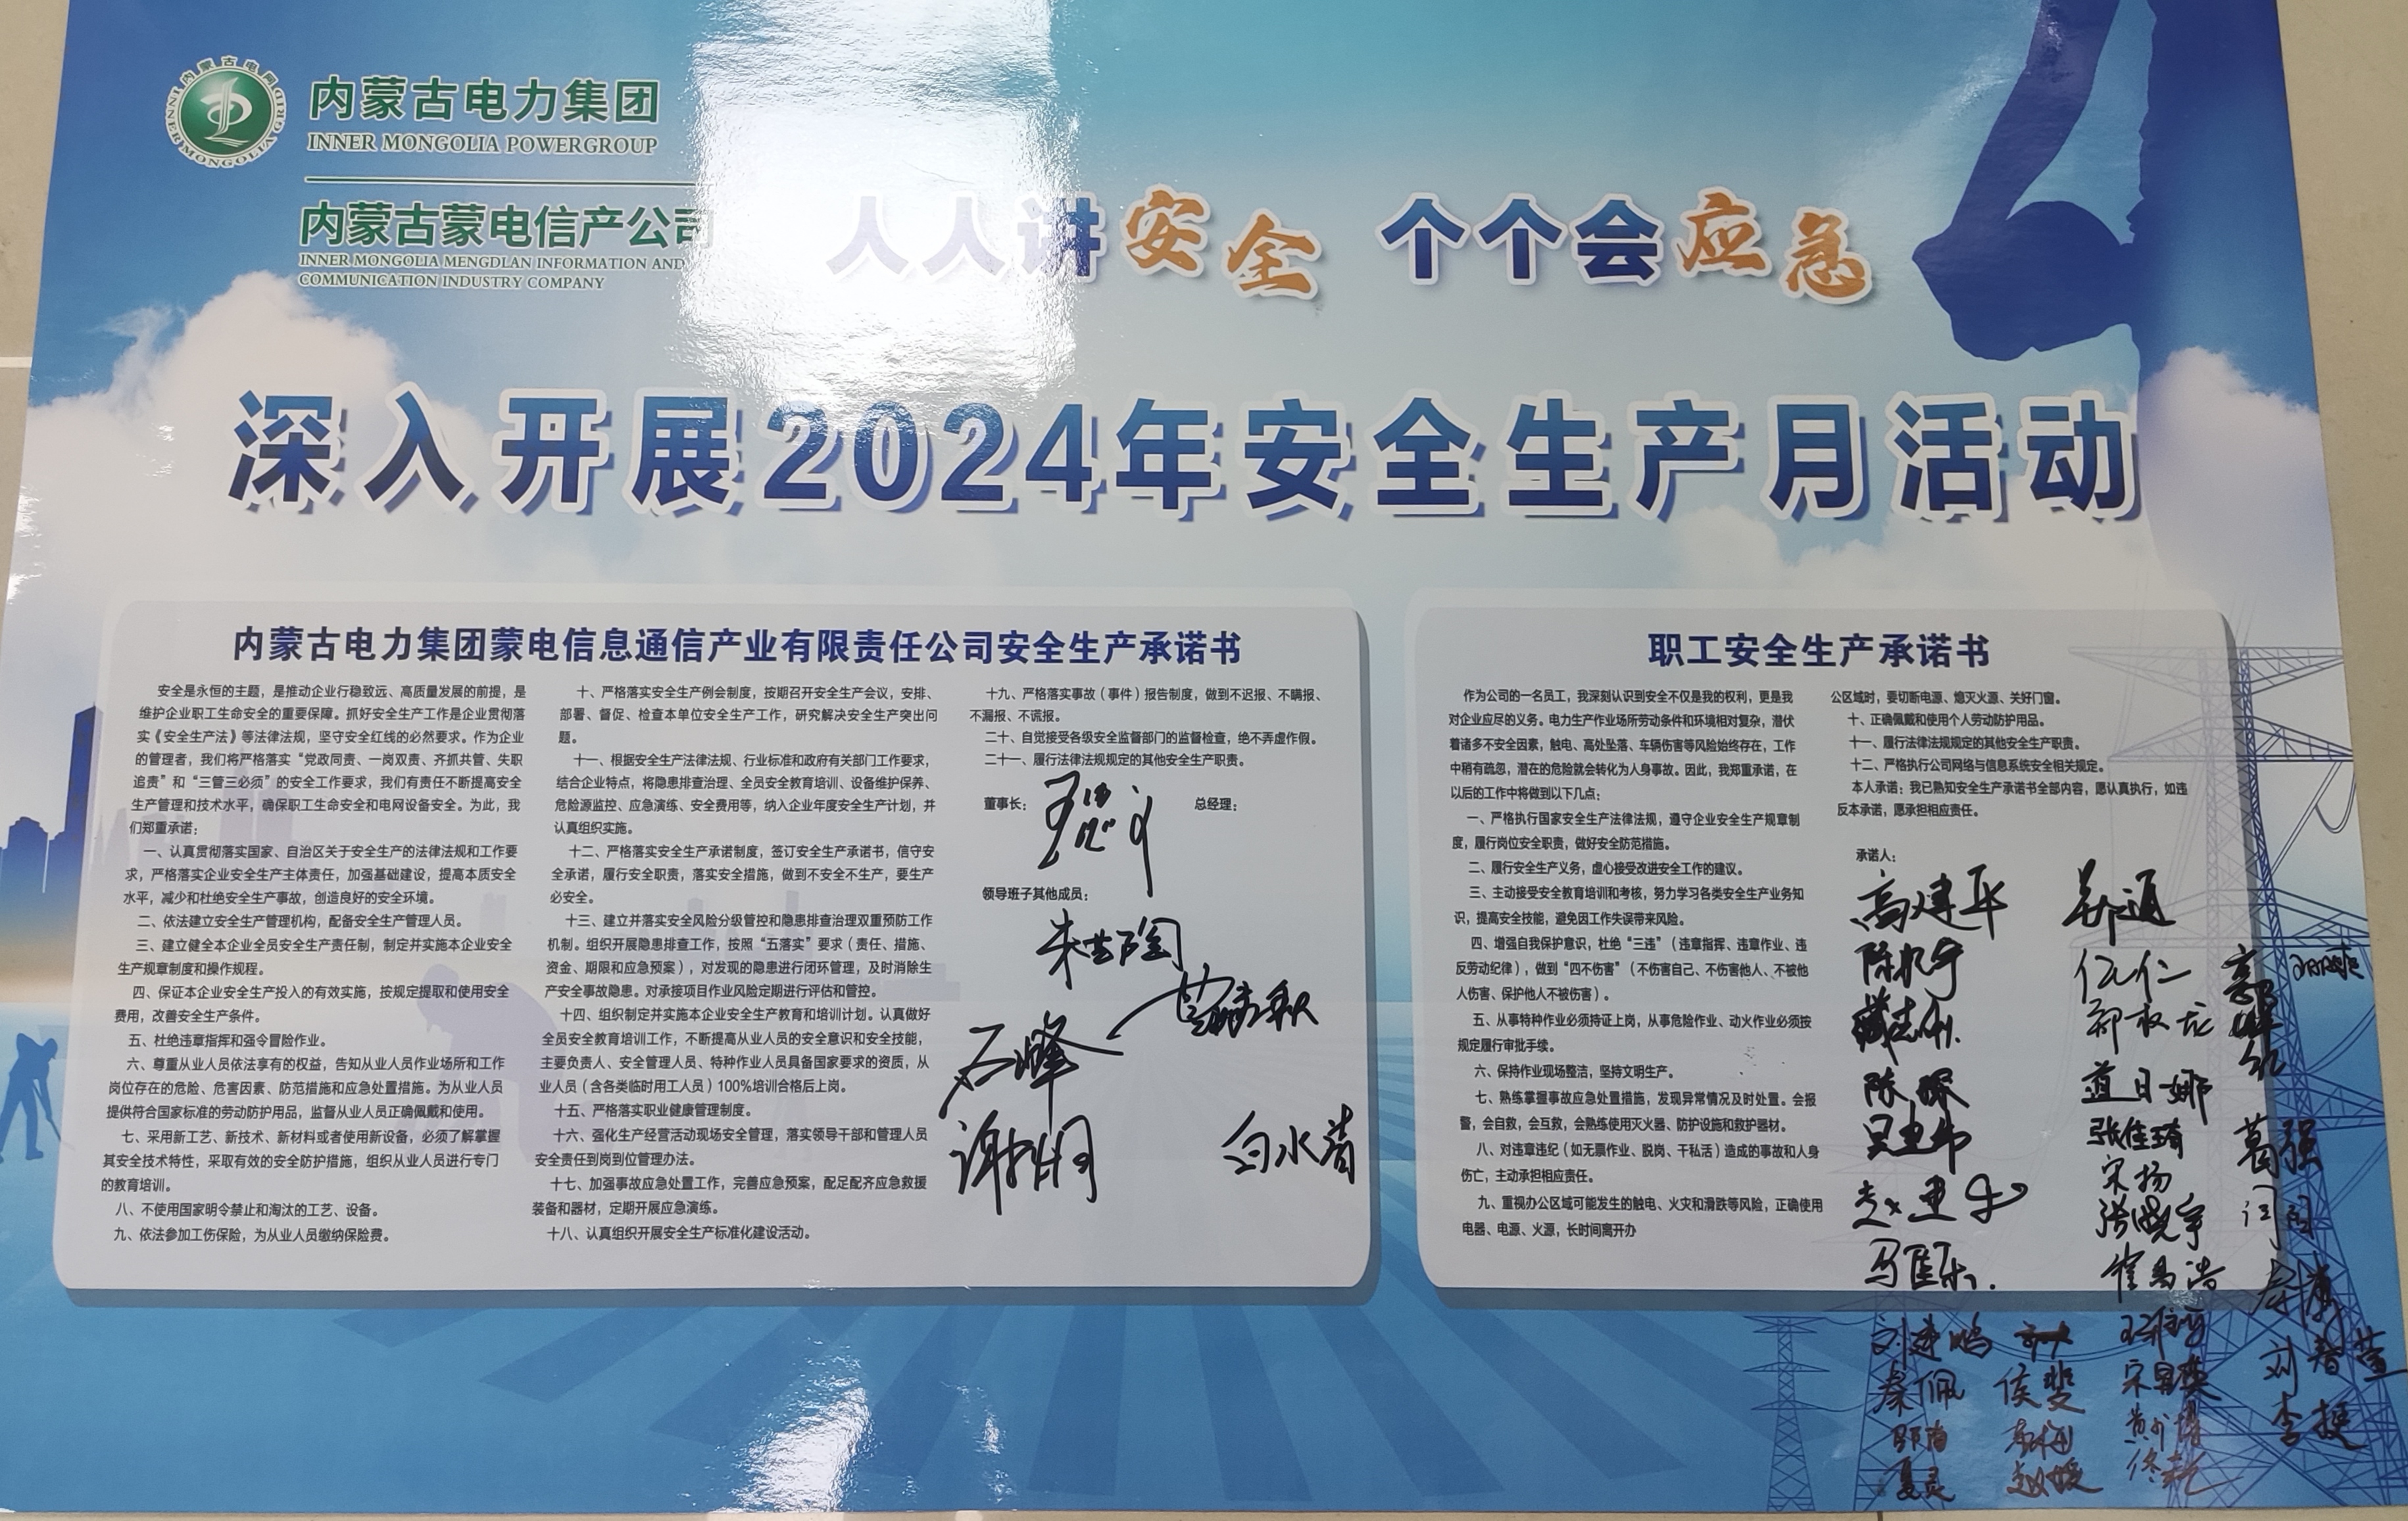 内蒙古电网
INNER MONGOLIA GRID
内蒙古电力集团
INNER MONGOLIA POWERGROUP
内蒙古蒙电信产公司
INNER MONGOLIA MENGDLAN INFORMATION AND
COMMUNICATION INDUSTRY COMPANY
人人讲安全 个个会应急
深入开展2024年安全生产月活动
内蒙古电力集团蒙电信息通信产业有限责任公司安全生产承诺书
安全是永恒的主题，是推动企业行稳致远、高质量发展的前提，是
维护企业职工生命安全的重要保障。抓好安全生产工作是企业贯彻落
实《安全生产法》等法律法规，坚守安全红线的必然要求。作为企业
的管理者，我们将严格落实“党政同责、一岗双责、齐抓共管、失职
追责”和“三管三必须”的安全工作要求，我们有责任不断提高安全
生产管理和技术水平，确保职工生命安全和电网设备安全。为此，我
们郑重承诺：
一、认真贯彻落实国家、自治区关于安全生产的法律法规和工作要
求，严格落实企业安全生产主体责任，加强基础建设，提高本质安全
水平，减少和杜绝安全生产事故，创造良好的安全环境。
二、依法建立安全生产管理机构，配备安全生产管理人员。
三、建立健全本企业全员安全生产责任制，制定并实施本企业安全
生产规章制度和操作规程。
四、保证本企业安全生产投入的有效实施，按规定提取和使用安全
费用，改善安全生产条件。
五、杜绝违章指挥和强令冒险作业。
六、尊重从业人员依法享有的权益，告知从业人员作业场所和工作
岗位存在的危险、危害因素、防范措施和应急处置措施。为从业人员
提供符合国家标准的劳动防护用品，监督从业人员正确佩戴和使用。
七、采用新工艺、新技术、新材料或者使用新设备，必须了解掌握
其安全技术特性，采取有效的安全防护措施，组织从业人员进行专门
的教育培训。
八、不使用国家明令禁止和淘汰的工艺、设备。
九、依法参加工伤保险，为从业人员缴纳保险费。
十、严格落实安全生产例会制度，按期召开安全生产会议，安排、
部署、督促、检查本单位安全生产工作，研究解决安全生产突出问
题。
十一、根据安全生产法律法规、行业标准和政府有关部门工作要求，
结合企业特点，将隐患排查治理、全员安全教育培训、设备维护保养、
危险源监控、应急演练、安全费用等，纳入企业年度安全生产计划，并
认真组织实施。
十二、严格落实安全生产承诺制度，签订安全生产承诺书，信守安
全承诺，履行安全职责，落实安全措施，做到不安全不生产，要生产
必安全。
十三、建立并落实安全风险分级管控和隐患排查治理双重预防工作
机制。组织开展隐患排查工作，按照“五落实”要求（责任、措施、
资金、期限和应急预案），对发现的隐患进行闭环管理，及时消除生
产安全事故隐患。对承接项目作业风险定期进行评估和管控。
十四、组织制定并实施本企业安全生产教育和培训计划。认真做好
全员安全教育培训工作，不断提高从业人员的安全意识和安全技能，
主要负责人、安全管理人员、特种作业人员具备国家要求的资质，从
业人员（含各类临时用工人员）100%培训合格后上岗。
十五、严格落实职业健康管理制度。
十六、强化生产经营活动现场安全管理，落实领导干部和管理人员
安全责任到岗到位管理办法。
十七、加强事故应急处置工作，完善应急预案，配足配齐应急救援
装备和器材，定期开展应急演练。
十八、认真组织开展安全生产标准化建设活动。
十九、严格落实事故（事件）报告制度，做到不迟报、不瞒报、
不漏报、不谎报。
二十、自觉接受各级安全监督部门的监督检查，绝不弄虚作假。
二十一、履行法律法规规定的其他安全生产职责。
董事长： 总经理：
领导班子其他成员：
石峰
白水清
职工安全生产承诺书
作为公司的一名员工，我深刻认识到安全不仅是我的权利，更是我
对企业应尽的义务。电力生产作业场所劳动条件和环境相对复杂，潜伏
着诸多不安全因素，触电、高处坠落、车辆伤害等风险始终存在，工作
中稍有疏忽，潜在的危险就会转化为人身事故。因此，我郑重承诺，在
以后的工作中将做到以下几点：
一、严格执行国家安全生产法律法规，遵守企业安全生产规章制
度，履行岗位安全职责，做好安全防范措施。
二、履行安全生产义务，虚心接受改进安全工作的建议。
三、主动接受安全教育培训和考核，努力学习各类安全生产业务知
识，提高安全技能，避免因工作失误带来风险。
四、增强自我保护意识，杜绝“三违”（违章指挥、违章作业、违
反劳动纪律），做到“四不伤害”（不伤害自己、不伤害他人、不被他
人伤害、保护他人不被伤害）。
五、从事特种作业必须持证上岗，从事危险作业、动火作业必须按
规定履行审批手续。
六、保持作业现场整洁，坚持文明生产。
七、熟练掌握事故应急处置措施，发现异常情况及时处置。会报
警，会自救，会互救，会熟练使用灭火器、防护设施和救护器材。
八、对违章违纪（如无票作业、脱岗、干私活）造成的事故和人身
伤亡，主动承担相应责任。
九、重视办公区域可能发生的触电、火灾和滑跌等风险，正确使用
电器、电源、火源，长时间离开办
公区域时，要切断电源、熄灭火源、关好门窗。
十、正确佩戴和使用个人劳动防护用品。
十一、履行法律法规规定的其他安全生产职责。
十二、严格执行公司网络与信息系统安全相关规定。
本人承诺：我已熟知安全生产承诺书全部内容，愿认真执行，如违
反本承诺，愿承担相应责任。
承诺人：
高建平
陈琛
道日娜
张佳琦
宋扬
张晓宇
崔易浩
葛强
刘建鹏
秦佩
侯斐
夏灵
赵媛